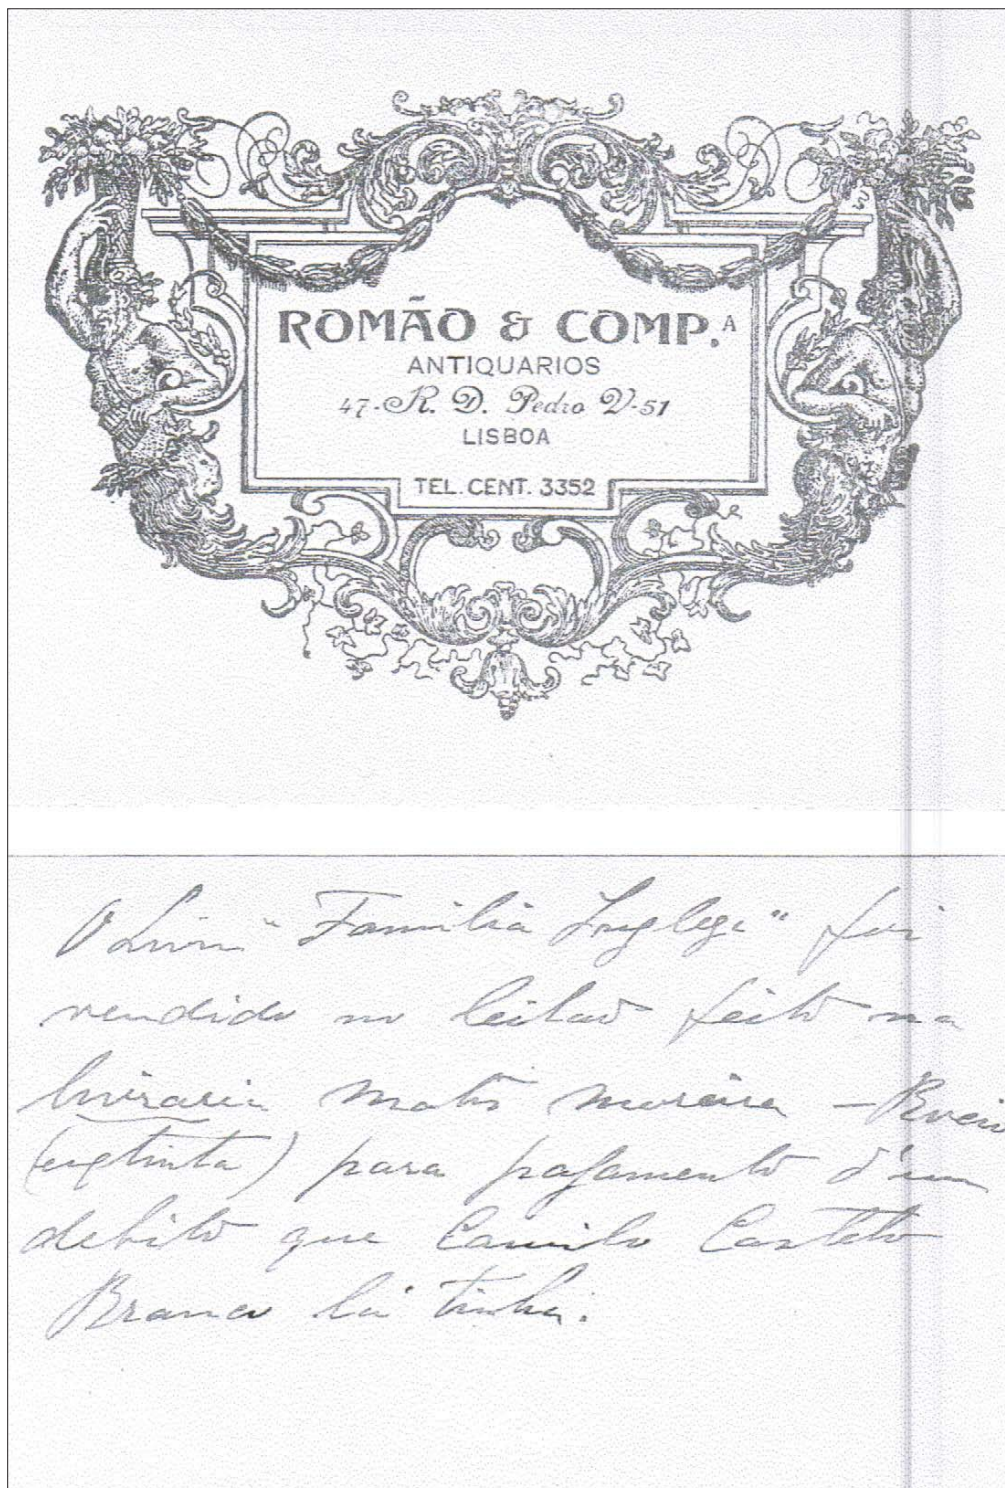 ROMÃO & COMP.A
ANTIQUARIOS
47-R. D. Pedro V-51
LISBOA
TEL. CENT. 3352
O Livro "Familia Ingleza" foi
vendido no leilão feito na
livraria Matos Moreira -
(extinta) para pagamento d'um
debito que Camilo Castelo
Branco lá tinha.